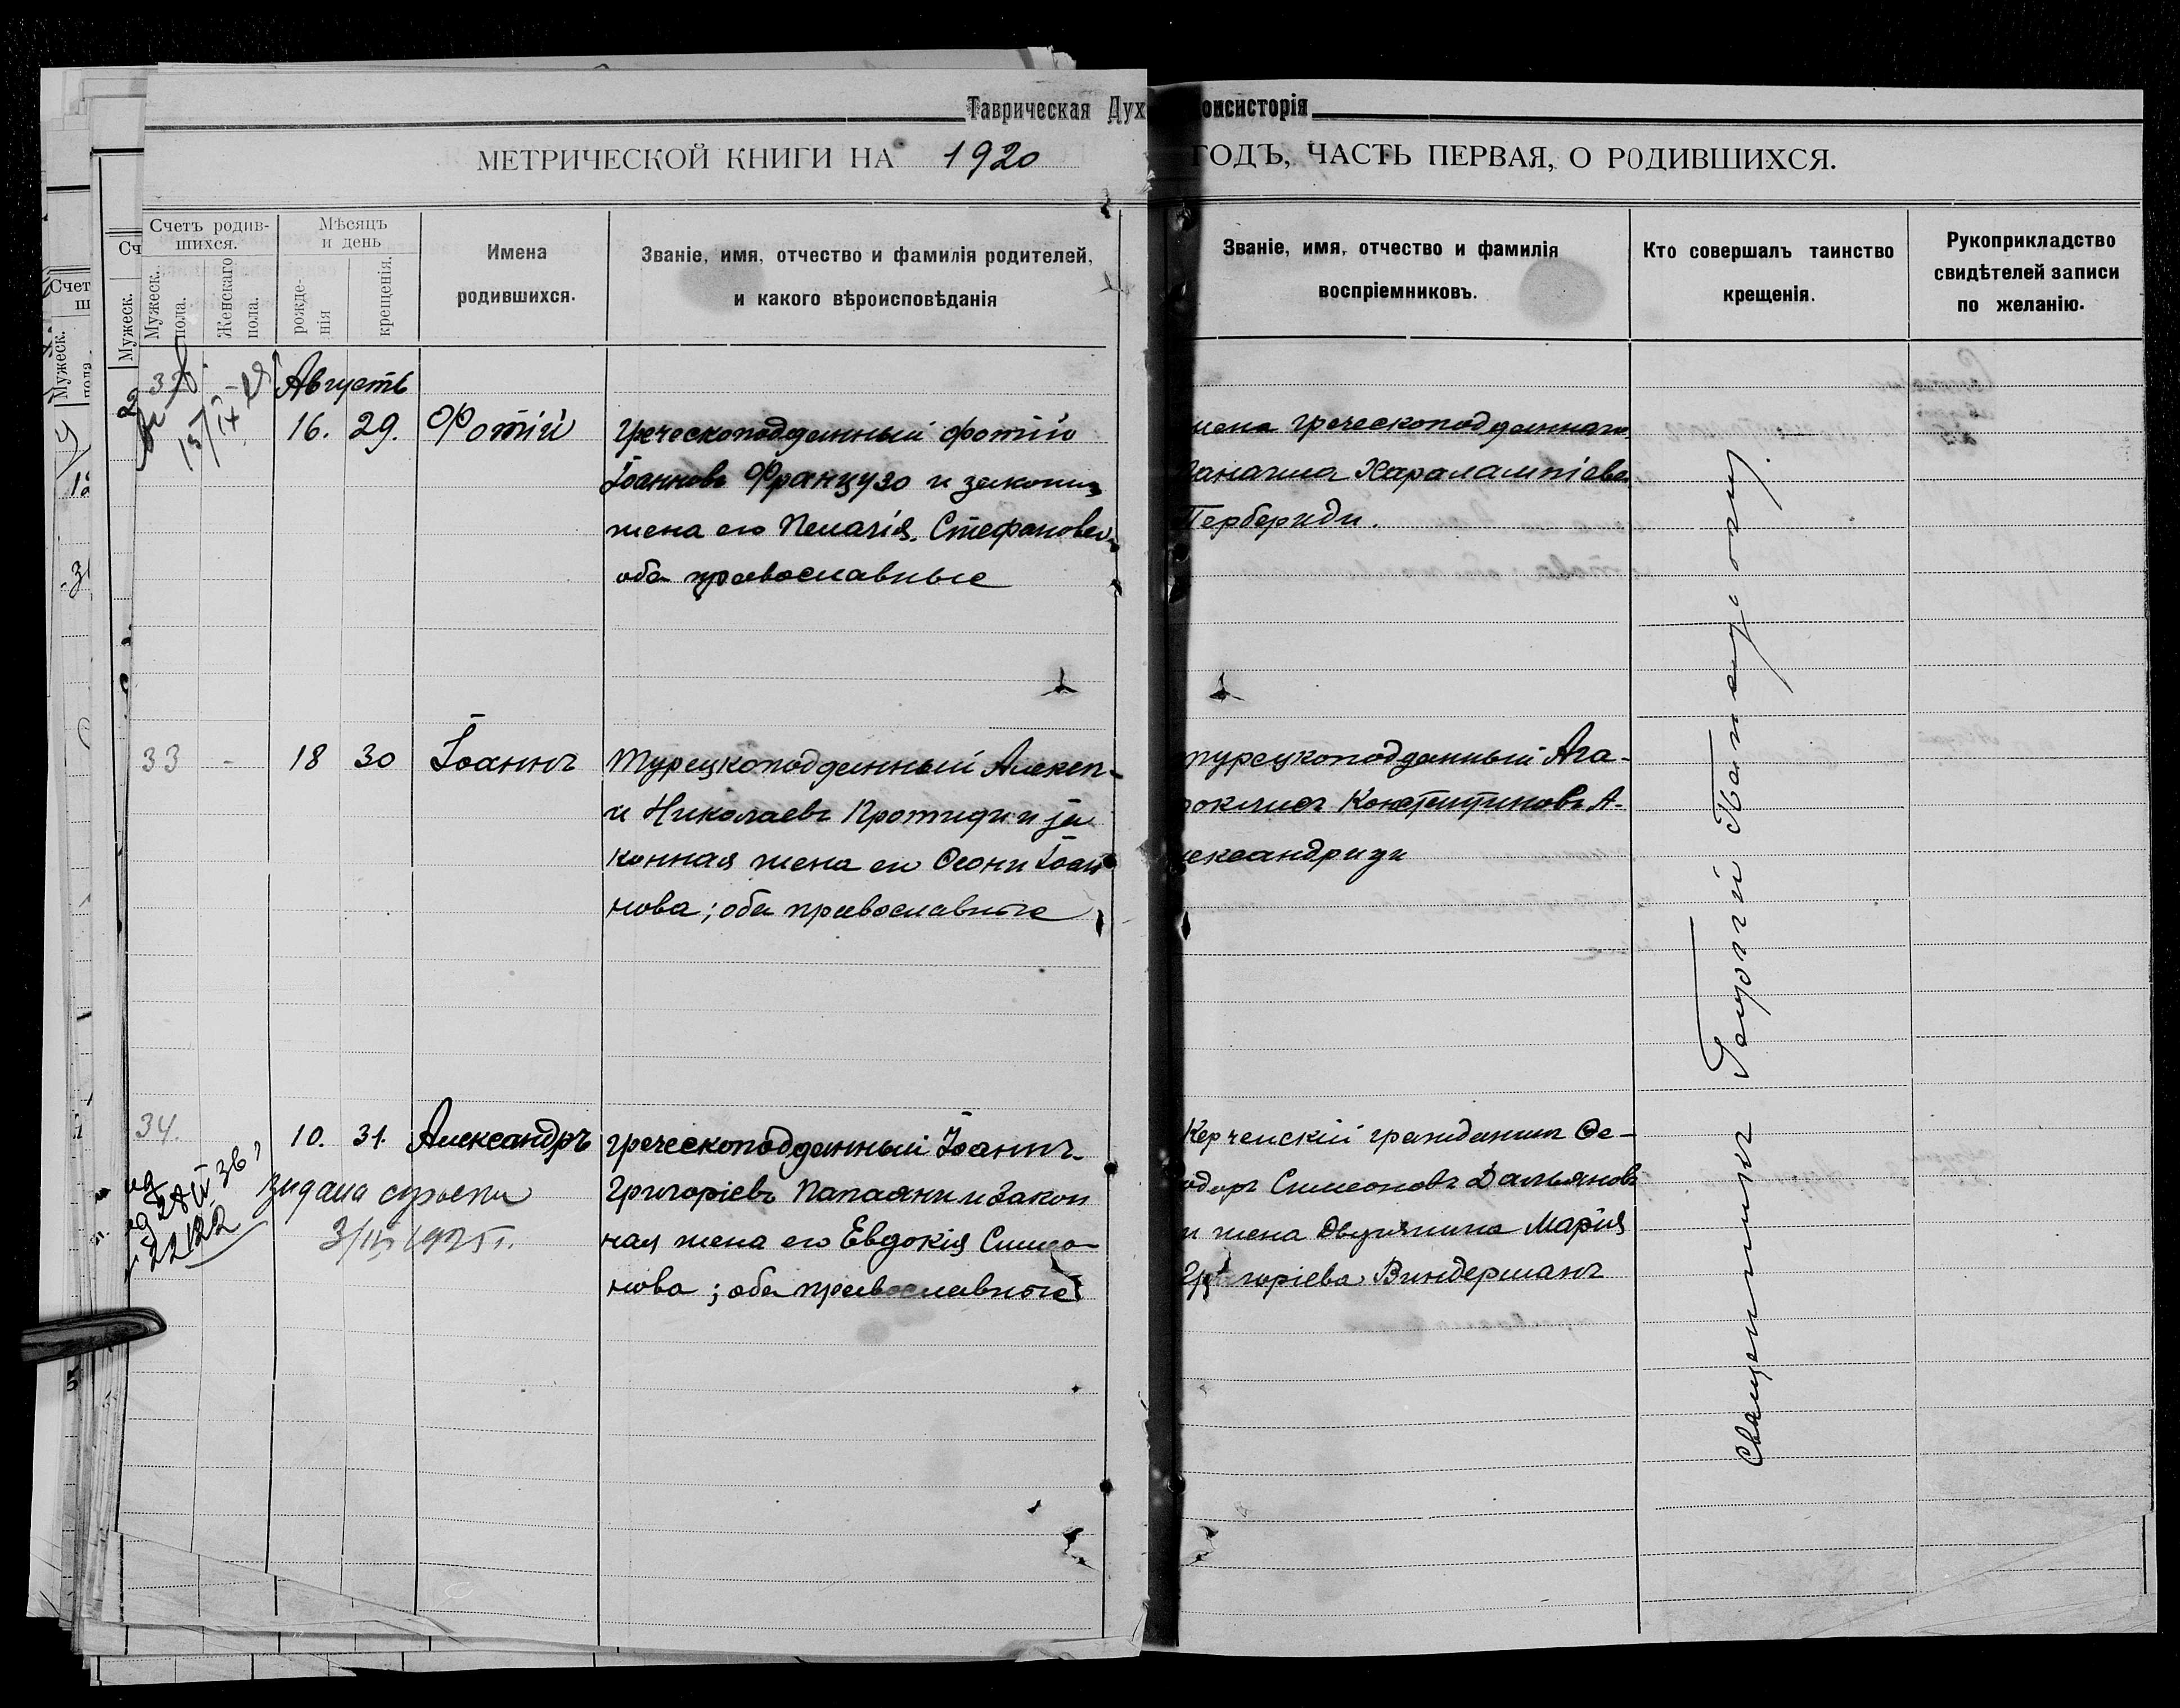 Таврическая Дух онсисторія
МЕТРИЧЕСКОЙ КНИГИ НА 1920 ГОДЪ, ЧАСТЬ ПЕРВАЯ, О РОДИВШИХСЯ.
Счетъ родив-
шихся.
Мужеск.
пола.
Женскаго
пола.
Мѣсяцъ
и день
рожде-
нія
крещенія.
Имена
родившихся.
Званіе, имя, отчество и фамилія родителей,
и какого вѣроисповѣданія
Званіе, имя, отчество и фамилія
воспріемниковъ.
Кто совершалъ таинство
крещенія.
Рукоприкладство
свидѣтелей записи
по желанію.
Августъ
16. 29. Фотій
Греческоподданный Фотій
Іоанновъ Французо и законн
жена его Пелагія Стефанова
оба православные
жена греческоподданнаго
Панагиа Харалампіева
Тербериди.
33 - 18 30 Іоаннъ
Турецкоподданный Алекс
й Николаевъ Протиди и за
конная жена его Ѳеони Іоан
нова; оба православные
турецкоподданный Ага-
оклисъ Константиновъ А-
лександриди
34. 10. 31. Александръ
греческоподданный Іоаннъ
Григоріевъ Папаяни и закон
ная жена его Евдокія Симео
нова; оба православные
Керченскій гражданинъ Ѳе-
одоръ Симеоновъ Дальяновъ
и жена Дворянина Марія
Григоріева Виндерманъ
28 IV 36
22122
выдана
1925 г.
Священникъ Георгій